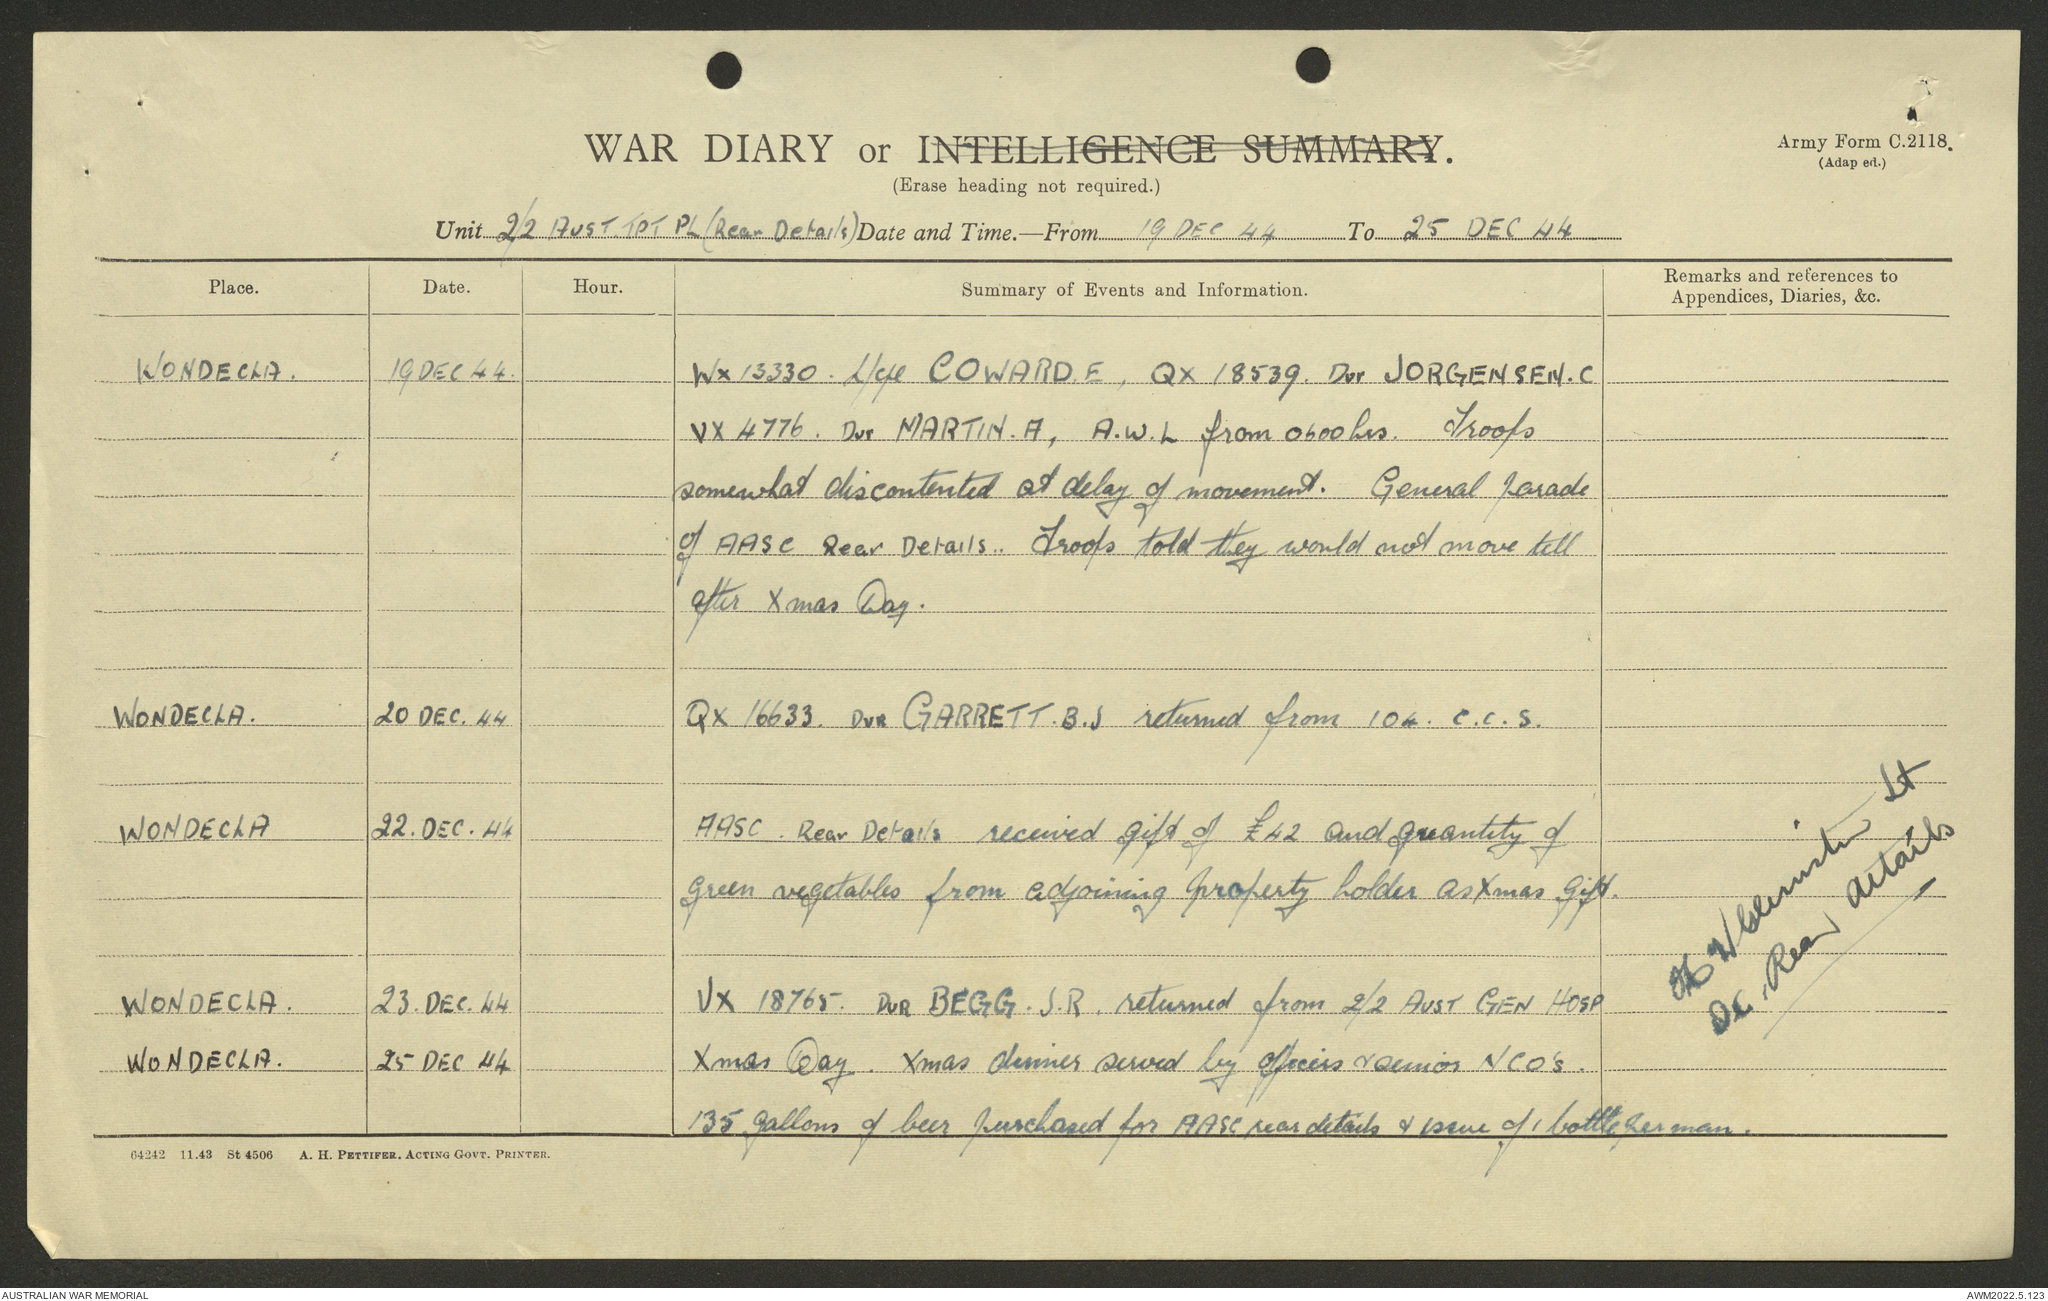 WAR DIARY or INTELLIGENCE SUMMARY.
Army Form C.2118.
(Adap ed.)
(Erase heading not required.)
Unit 2/2 AUST. TPT PL (Rear Details) Date and Time.—From 19 DEC 44 To 25 DEC 44
Place. Date. Hour. Summary of Events and Information. Remarks and references to
Appendices, Diaries, &c.
WONDECLA. 19 DEC 44. WX 13330. L/cpl COWARD. E, QX 18539. Dvr JORGENSEN. C
VX 4776. Dvr MARTIN. A, A.W.L from 0600 hrs. Troops
somewhat discontented at delay of movement. General parade
of AASC Rear Details.. Troops told they would not move till
after Xmas Day.
WONDECLA. 20 DEC. 44 QX 16633. DVR GARRETT. B.J returned from 104. C.C.S.
WONDECLA 22. DEC. 44 AASC. Rear Details received gift of £42 and quantity of
green vegetables from adjoining property holder as Xmas gift.
WONDECLA. 23. DEC. 44 VX 18765. DVR BEGG. J.R. returned from 2/2 AUST GEN HOSP
WONDECLA. 25 DEC 44 Xmas Day. Xmas dinner served by officers & senior NCO's.
135 gallons of beer purchased for AASC rear details & issue of 1 bottle per man.
Lt
OC. Rear details
64242 11.43 St 4506 A. H. PETTIFER. ACTING GOVT. PRINTER.
AUSTRALIAN WAR MEMORIAL
AWM2022.5.123